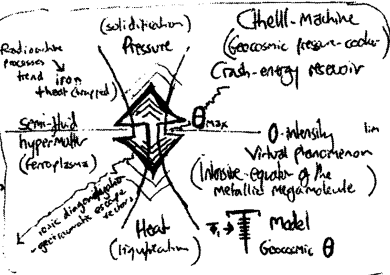 (solidification)
Pressure
Cthelll-Machine
(Geocosmic pressure-cooker)
Crash-energy reservoir
Radioactive
processes
trend
iron
+heat (trapped)
θmax
Semi-fluid
hypermatter
(ferroplasma)
0-intensity
lim
Virtual Phenomenon
(Intensive-equator of the
metallic megamolecule)
ionic diagonalization
-electromatic escape
vectors
Heat
(liquification)
Model
Geocosmic θ